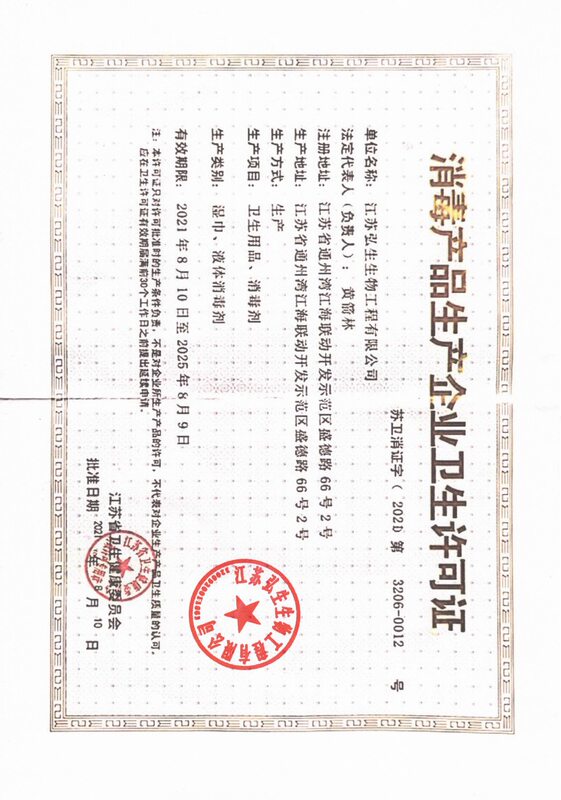 消毒产品生产企业卫生许可证
苏卫消证字（2021）第 3206-0012 号
单位名称：江苏弘生生物工程有限公司
法定代表人（负责人）：黄箭林
注册地址：江苏省通州湾江海联动开发示范区盛德路66号2号
生产地址：江苏省通州湾江海联动开发示范区盛德路66号2号
生产方式：生产
生产项目：卫生用品、消毒剂
生产类别：湿巾、液体消毒剂
有效期限：2021年8月10日至2025年8月9日
注：本许可证只对许可批准时的生产条件负责，不是对企业所生产产品的许可，不代表对企业生产产品卫生质量的认可，
应在卫生许可证有效期届满前30个工作日之前提出延续申请。
江苏省卫生健康委员会
批准日期 2021年8月10日
江苏弘生生物工程有限公司